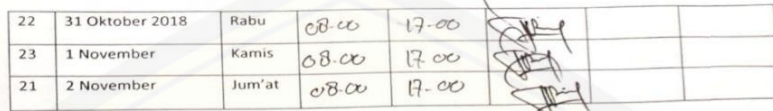 22 31 Oktober 2018 Rabu 08.00 17.00
23 1 November Kamis 08.00 17.00
21 2 November Jum'at 08.00 17.00